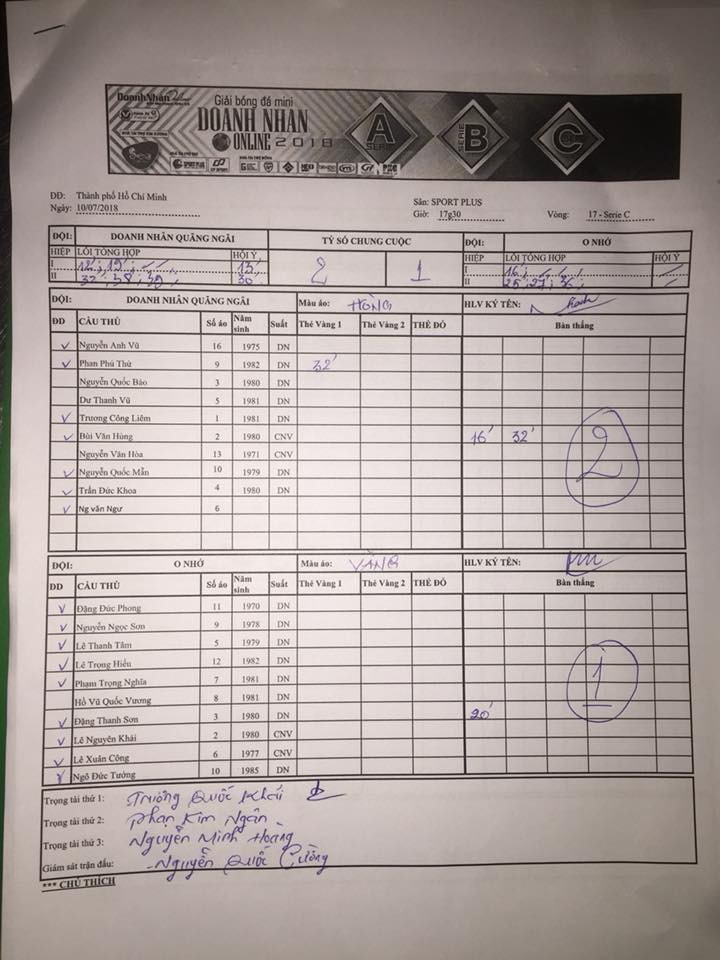 DoanhNhân
Giải bóng đá mini
DOANH NHÂN
ONLINE 2018
A
SERIE
SERIE
B
C
Sea
SPORT PLUS
ĐĐ: Thành phố Hồ Chí Minh
Sân: SPORT PLUS
Ngày: 10/07/2018
Giờ: 17g30 Vòng: 17 - Serie C
ĐỘI: DOANH NHÂN QUẢNG NGÃI TỶ SỐ CHUNG CUỘC ĐỘI: O NHỚ
HIỆP LỖI TỔNG HỢP HỘI Ý 2 1 HIỆP LỖI TỔNG HỢP HỘI Ý
I 12', 19' 13' I 16'
II 32', 38', 39' 36' II 25', 27', 36'
ĐỘI: DOANH NHÂN QUẢNG NGÃI Màu áo: HỒNG HLV KÝ TÊN:
ĐD CẦU THỦ Số áo Năm sinh Suất Thẻ Vàng 1 Thẻ Vàng 2 THẺ ĐỎ Bàn thắng
✓ Nguyễn Anh Vũ 16 1975 DN
✓ Phan Phú Thử 9 1982 DN 32'
Nguyễn Quốc Bảo 3 1980 DN
Dư Thanh Vũ 5 1981 DN
✓ Trương Công Liêm 1 1981 DN
✓ Bùi Văn Hùng 2 1980 CNV 16' 32' 2
Nguyễn Văn Hòa 13 1971 CNV
✓ Nguyễn Quốc Mẫn 10 1979 DN
✓ Trần Đức Khoa 4 1980 DN
✓ Ng văn Ngư 6
ĐỘI: O NHỚ Màu áo: VÀNG HLV KÝ TÊN:
ĐD CẦU THỦ Số áo Năm sinh Suất Thẻ Vàng 1 Thẻ Vàng 2 THẺ ĐỎ Bàn thắng
✓ Đặng Đức Phong 11 1970 DN
✓ Nguyễn Ngọc Sơn 9 1978 DN
✓ Lê Thanh Tâm 5 1979 DN
✓ Lê Trọng Hiếu 12 1982 DN
✓ Phạm Trọng Nghĩa 7 1981 DN 1
Hồ Vũ Quốc Vương 8 1981 DN
✓ Đặng Thanh Sơn 3 1980 DN 20'
✓ Lê Nguyên Khải 2 1980 CNV
✓ Lê Xuân Công 6 1977 CNV
✓ Ngô Đức Tưởng 10 1985 DN
Trọng tài thứ 1: Trương Quốc Khải
Trọng tài thứ 2: Phan Kim Ngân
Trọng tài thứ 3: Nguyễn Minh Hoàng
Giám sát trận đấu: Nguyễn Quốc Cường
*** CHÚ THÍCH